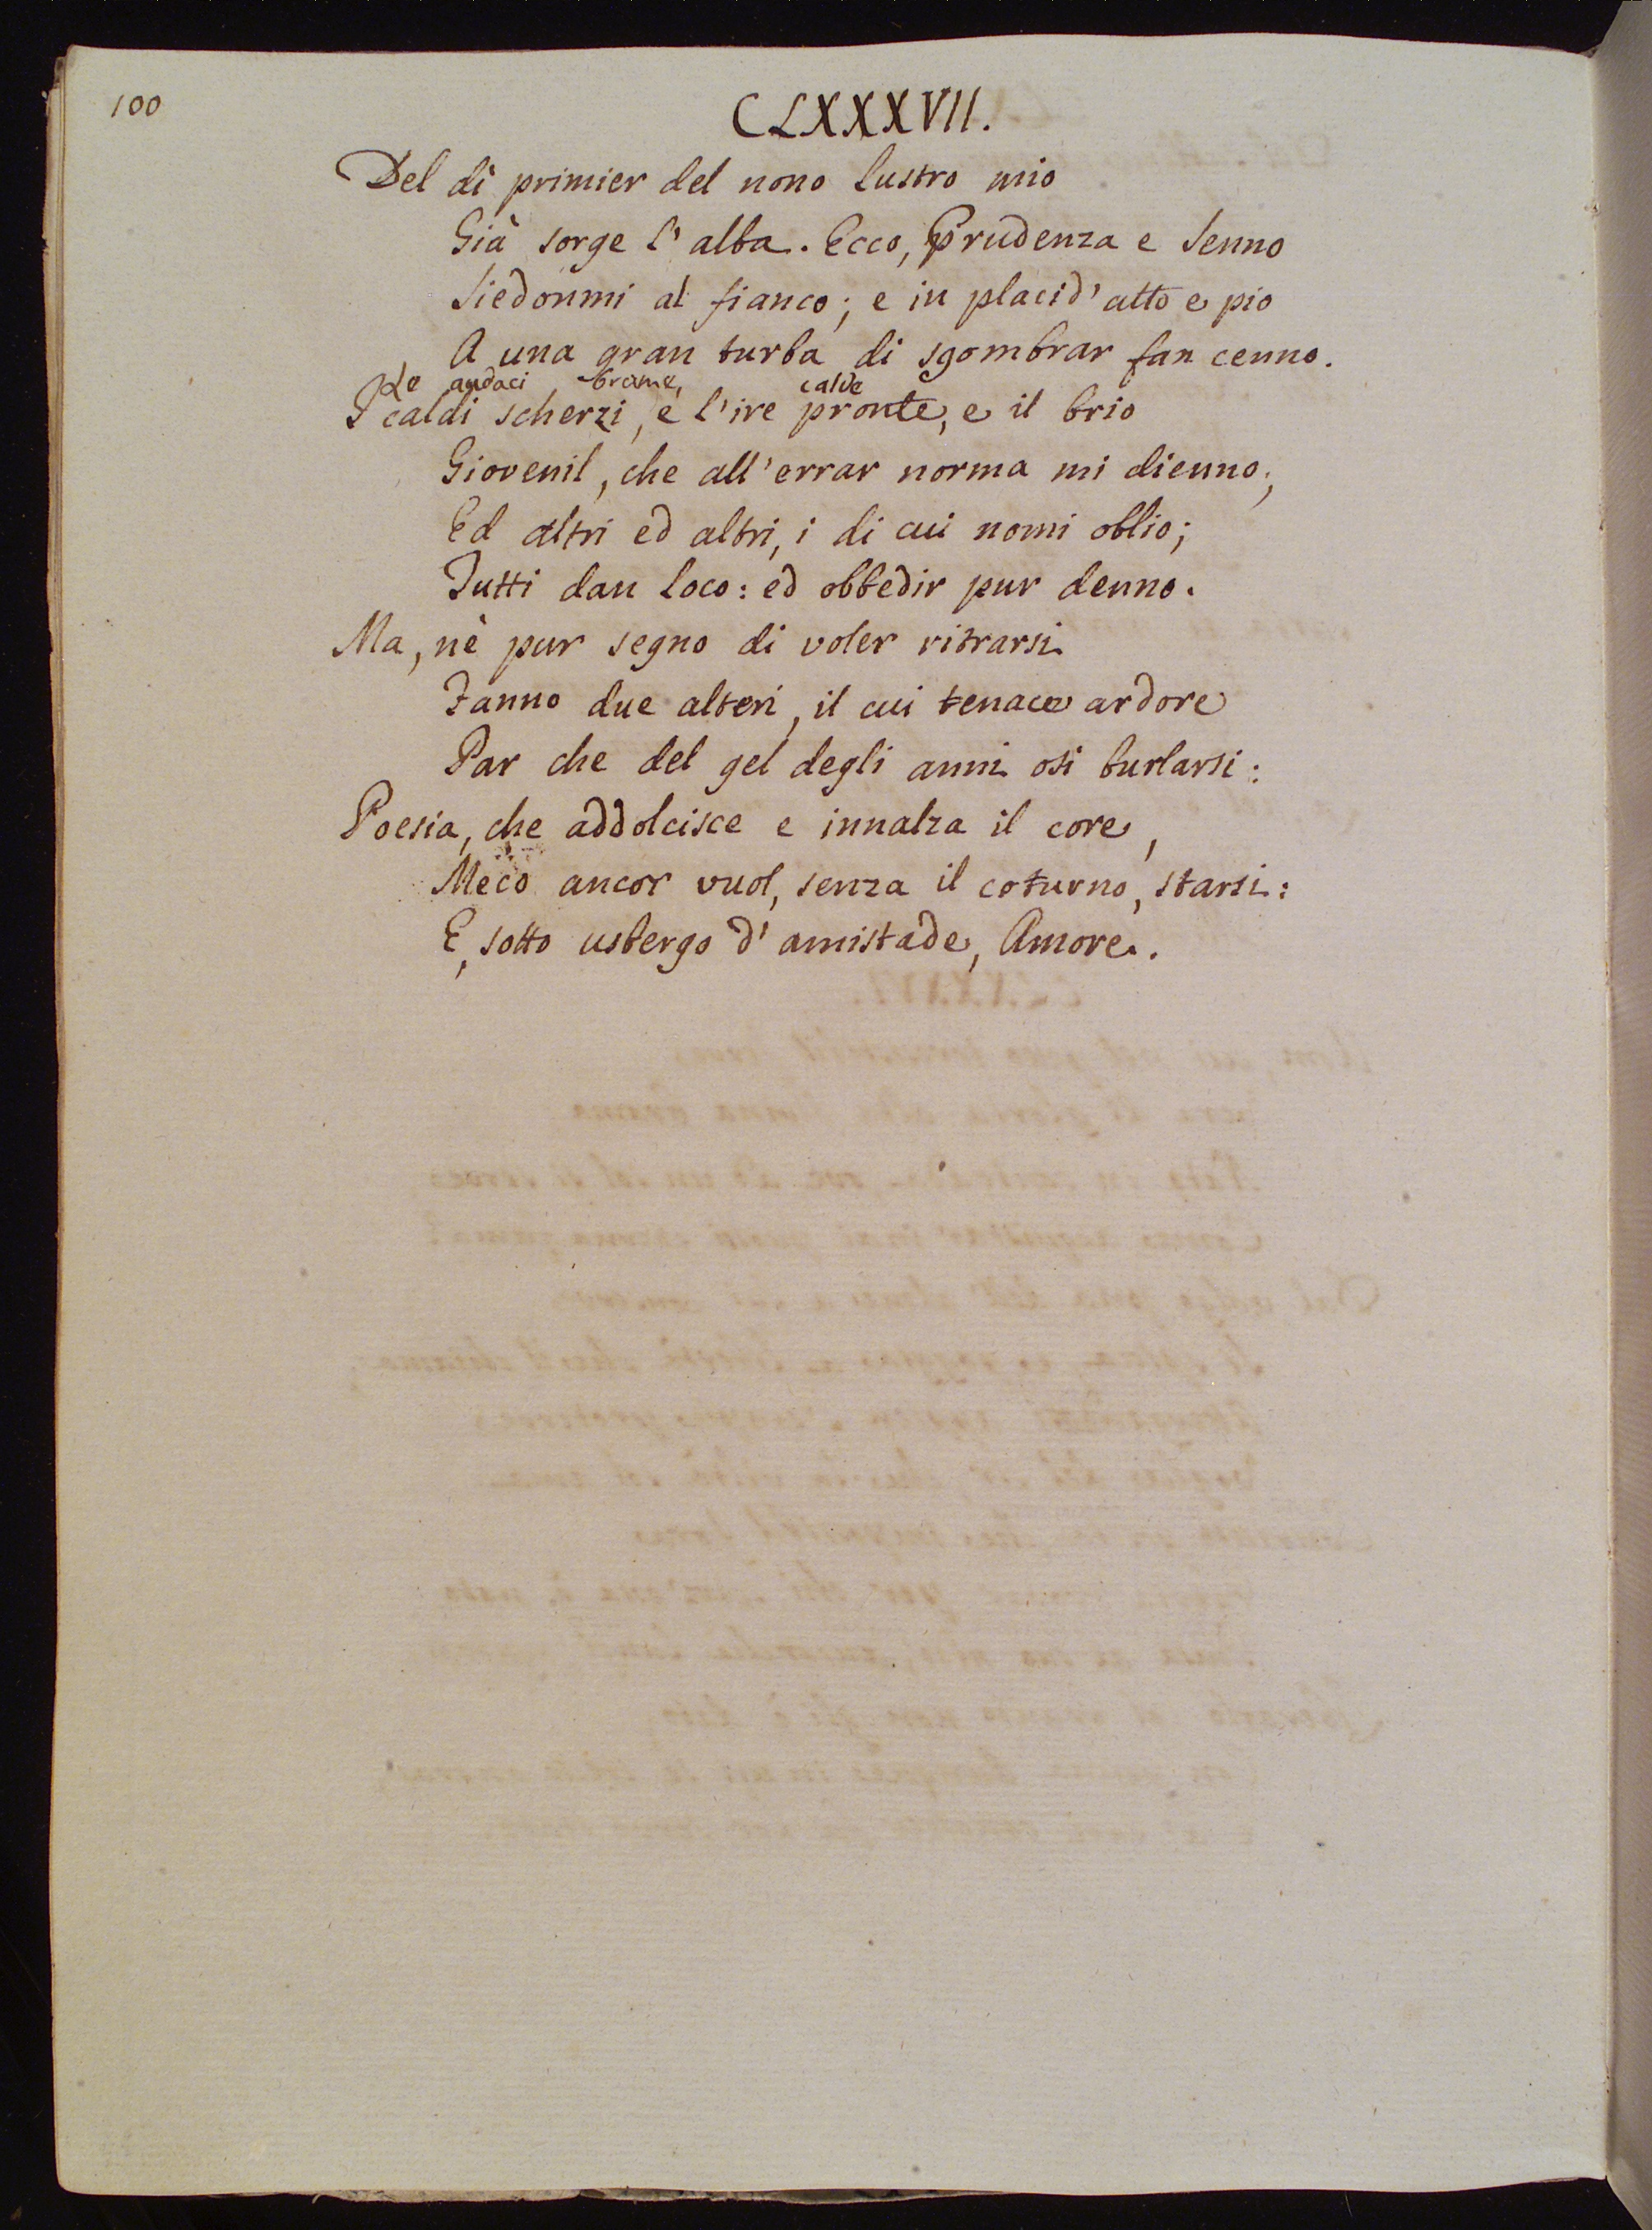 100
CLXXXVII.
Del dì primier del nono lustro mio
Già sorge l'alba. Ecco, Prudenza e Senno
Siedonmi al fianco; e in placid'atto e pio
A una gran turba di sgombrar fan cenno.
Le audaci brame, calde
I caldi scherzi, e l'ire pronte, e il brio
Giovenil, che all'errar norma mi dienno;
Ed altri ed altri, i di cui nomi oblio;
Tutti dan loco: ed obbedir pur denno.
Ma, nè pur segno di voler ritrarsi
Fanno due alteri, il cui tenace ardore
Par che del gel degli anni osi burlarsi:
Poesia, che addolcisce e innalza il core,
Meco ancor vuol, senza il coturno, starsi:
E, sotto usbergo d'amistade, Amore.